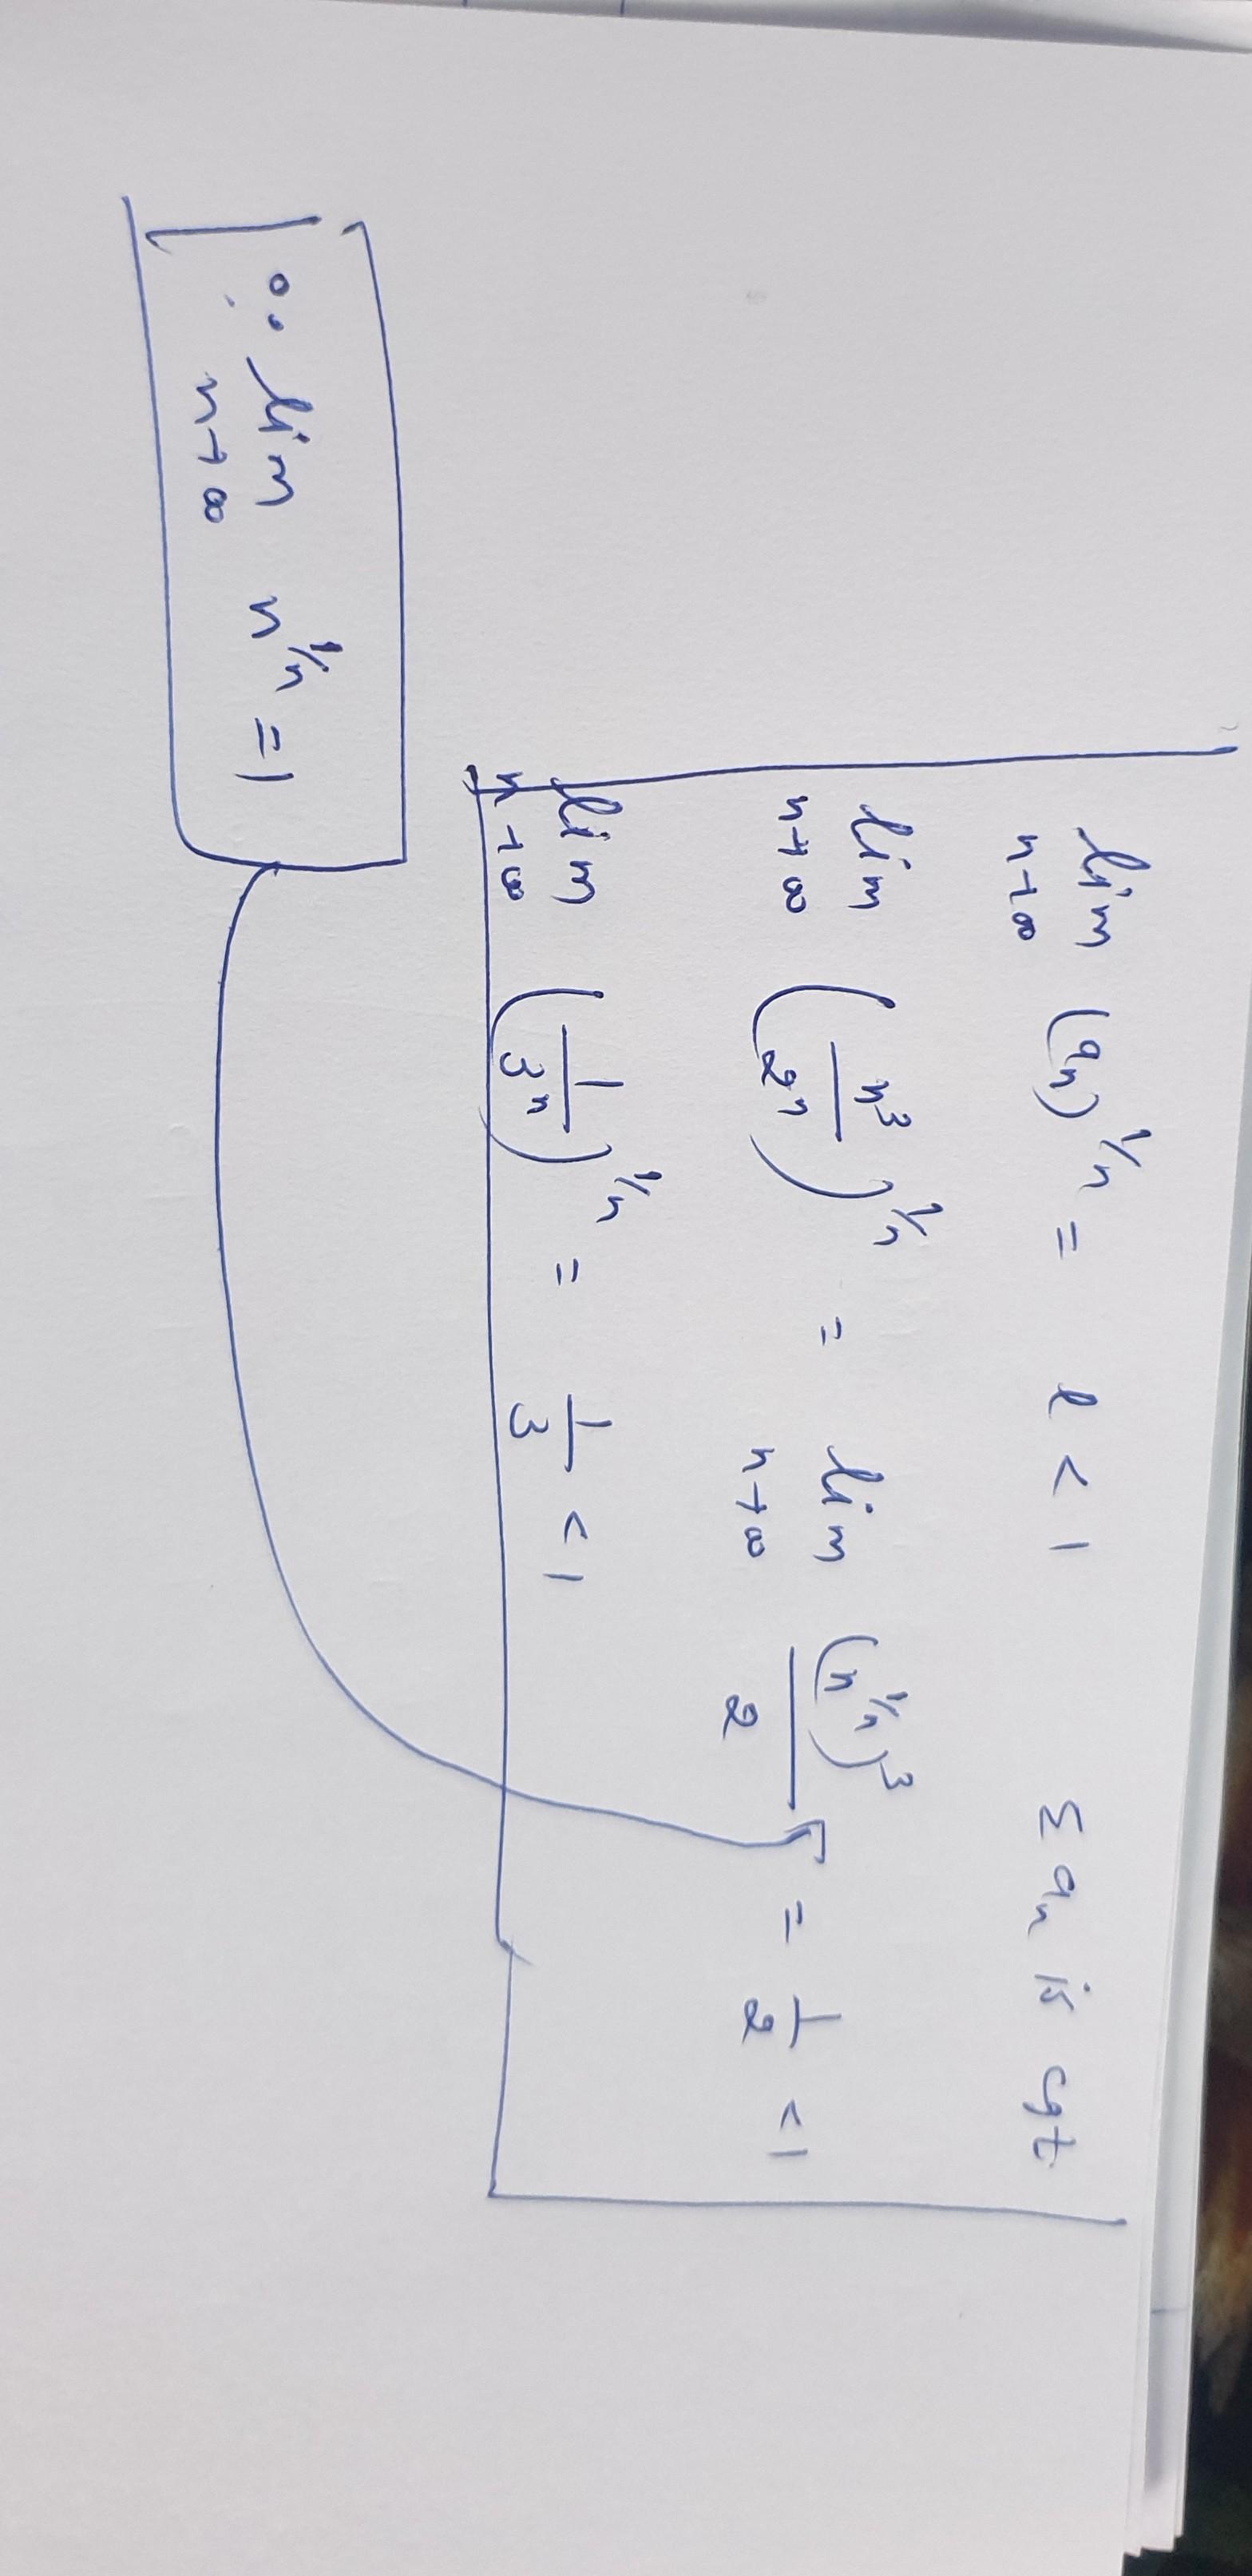 lim (aₙ)^{1/n} = l < 1    Σ aₙ is cgt
n→∞
lim (n³/2ⁿ)^{1/n} = lim (n^{1/n})³/2 = 1/2 < 1
n→∞    n→∞
lim (1/3ⁿ)^{1/n} = 1/3 < 1
n→∞
∵ lim n^{1/n} = 1
n→∞